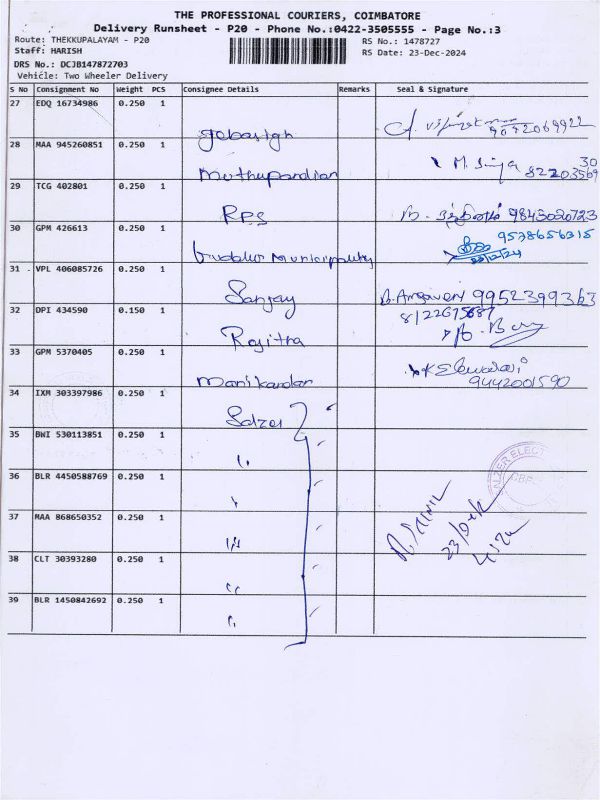 THE PROFESSIONAL COURIERS, COIMBATORE
Delivery Runsheet - P20 - Phone No.:0422-3505555 - Page No.:3
Route: THEKKUPALAYAM - P20
RS No.: 1478727
Staff: HARISH
RS Date: 23-Dec-2024
DRS No.: DCJB147872703
Vehicle: Two Wheeler Delivery
S No Consignment No Weight PCS Consignee Details Remarks Seal & Signature
27 EDQ 16734986 0.250 1
9092069922
28 MAA 945260851 0.250 1
Muthupandian
29 TCG 402801 0.250 1
RPS 9843020723
30 GPM 426613 0.250 1
9578656315
Gudalur Municipality 23/12/24
31 VPL 406085726 0.250 1
Sanjay
32 DPI 434590 0.150 1
8122675687
Rajitha
33 GPM 5370405 0.250 1
Manikandan 9442001590
34 IXM 303397986 0.250 1
Salzer
35 BWI 530113851 0.250 1
"
36 BLR 4450588769 0.250 1
"
37 MAA 868650352 0.250 1
"
38 CLT 30393280 0.250 1
"
39 BLR 1450842692 0.250 1
"